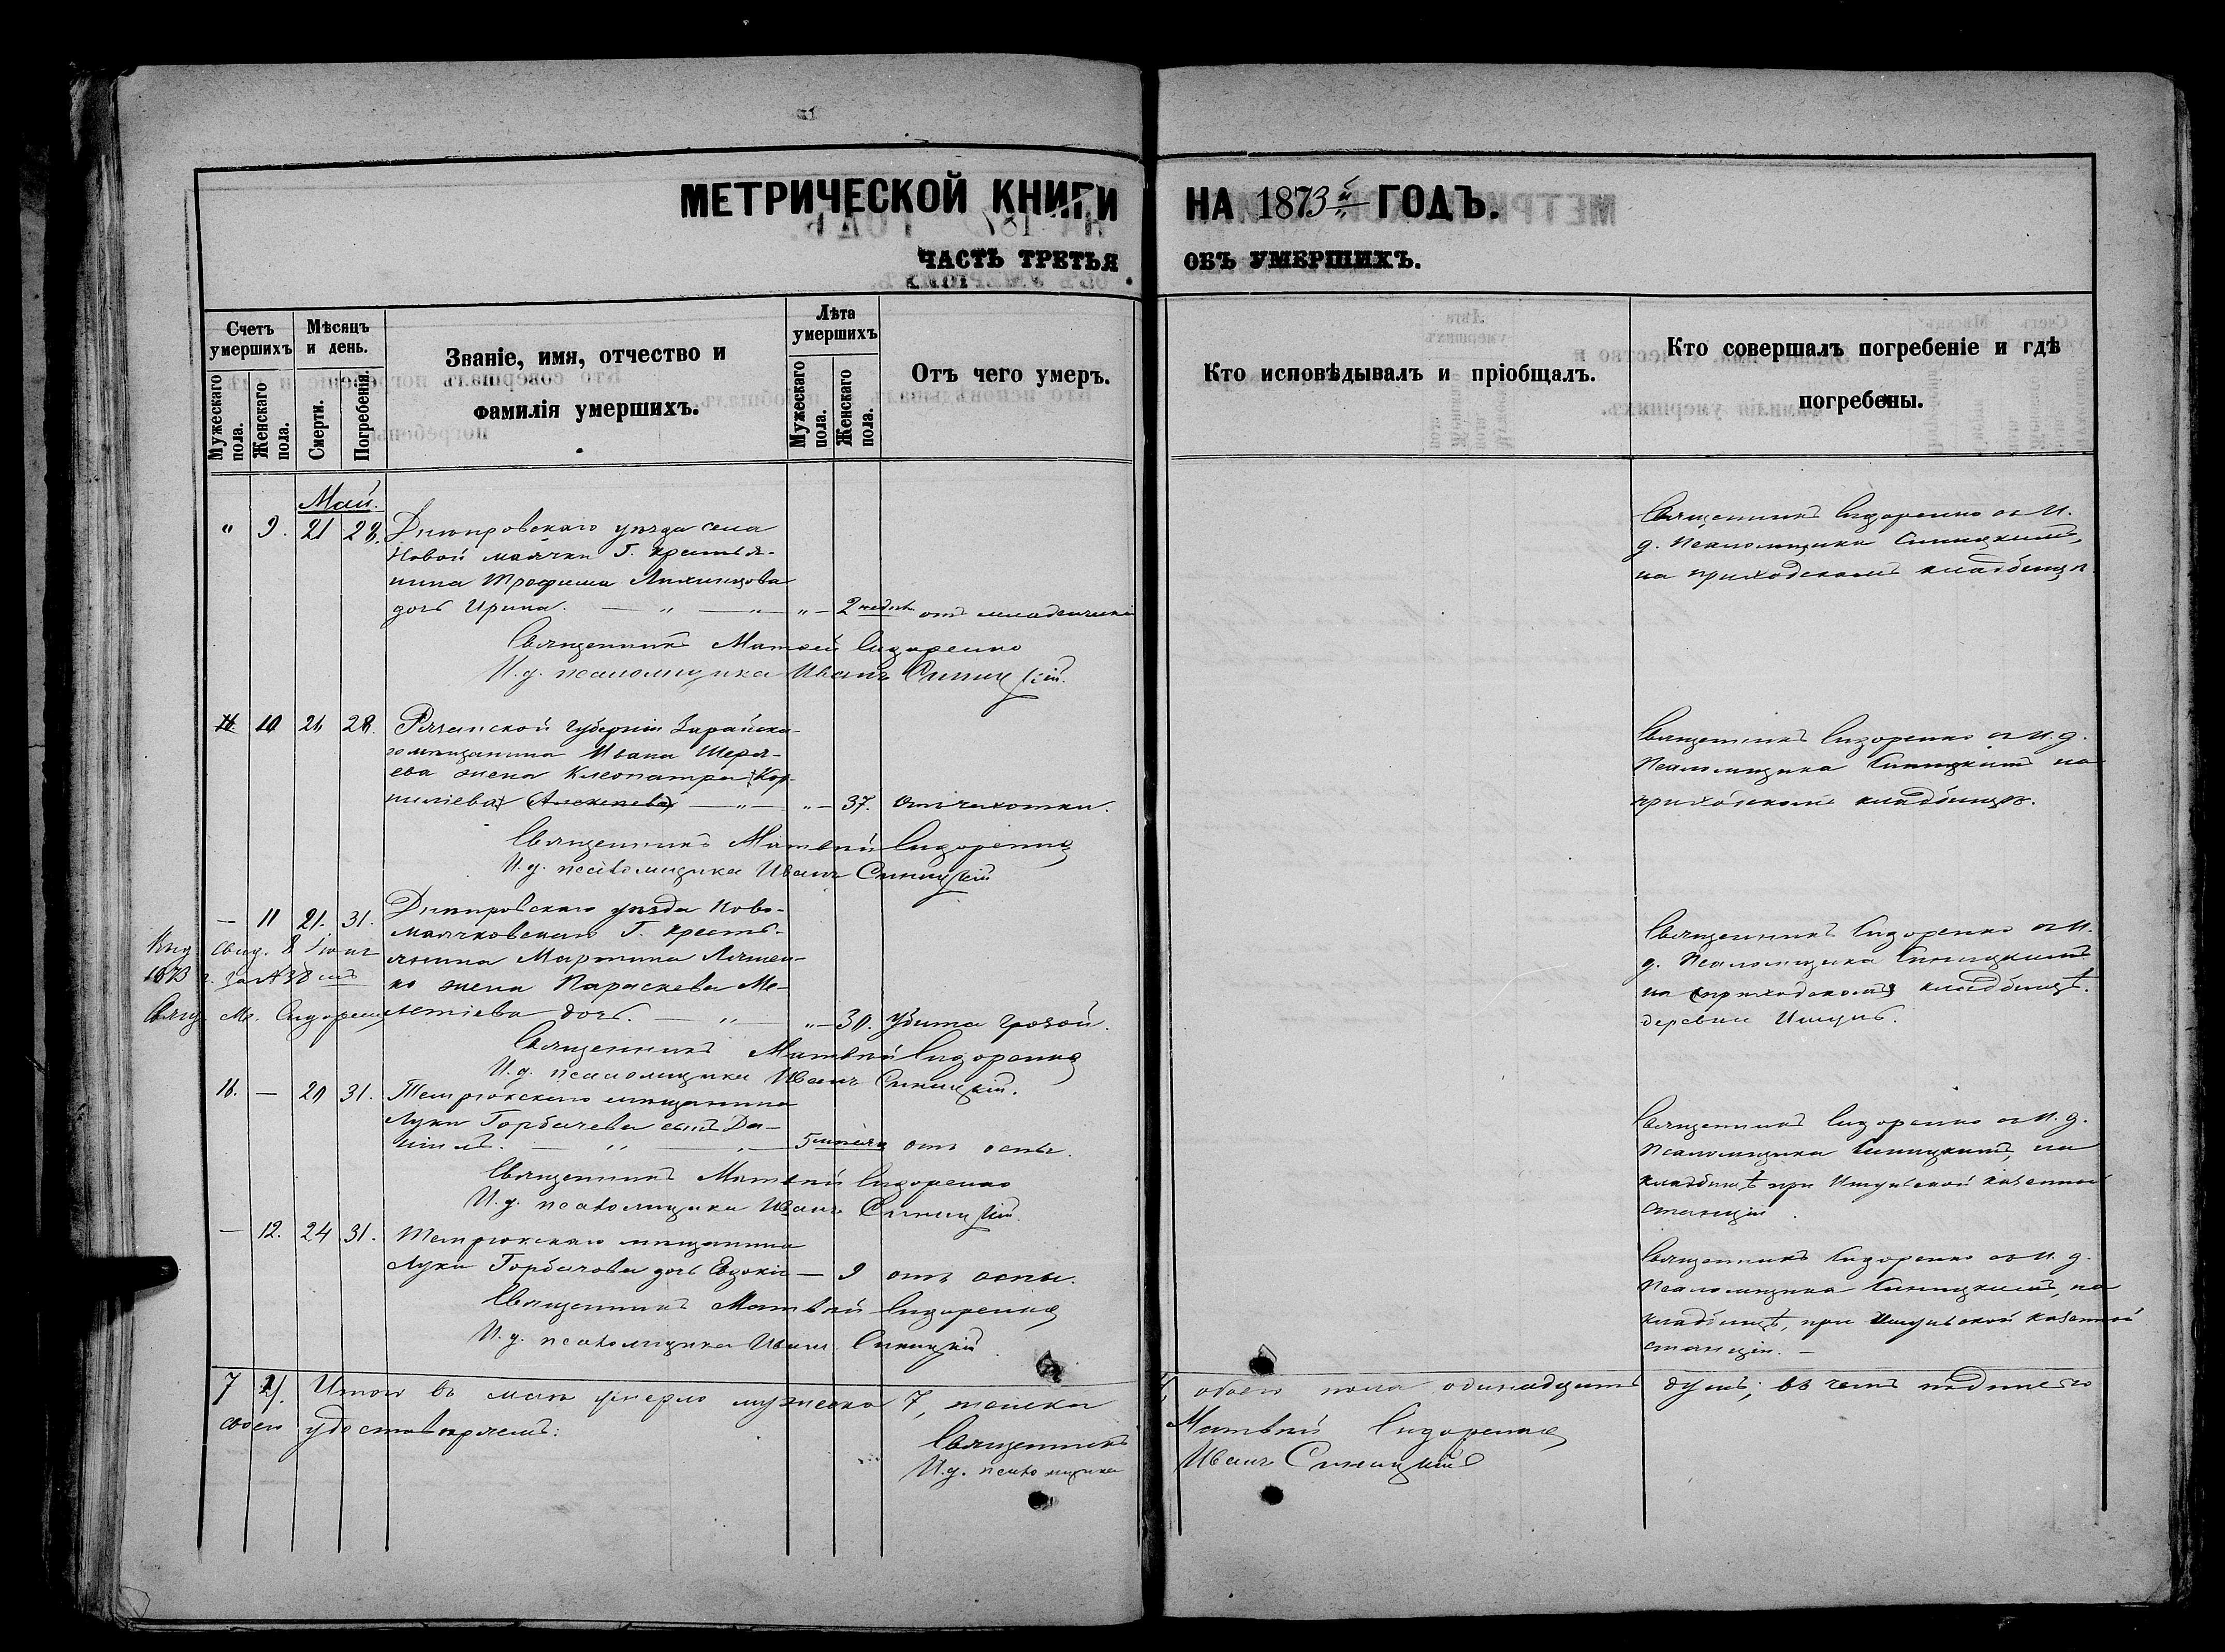 МЕТРИЧЕСКОЙ КНИГИ НА 1873й ГОДЪ.
ЧАСТЬ ТРЕТЬЯ ОБЪ УМЕРШИХЪ.
Счетъ умершихъ.
Мужескаго пола.
Женскаго пола.
Мѣсяцъ и день.
Смерти.
Погребенія.
Званіе, имя, отчество и
фамилія умершихъ.
Лѣта умершихъ
Мужескаго пола.
Женскаго пола.
Отъ чего умеръ.
Кто исповѣдывалъ и пріобщалъ.
Кто совершалъ погребеніе и гдѣ
погребены.
Май.
" 9. 21 23. Днѣпровскаго уѣзда села
Новой маячки Г. крестья-
нина Трофима
дочь Ирина. — " — " — " — 2 недѣл. отъ младенческ
Священникъ Матвей Сидоренко
И. д. псаломщика Иванъ Синицкій.
Священникъ Сидоренко съ И.
д. Псаломщика Синицкимъ,
на приходскомъ кладбищѣ.
10 26 28. Рязанской губерніи Зарайска-
го мѣщанина Ивана
ева жена Клеопатра (Кор-
ниліева) (Алексѣева) — " — " — 37. Отъ чахотки.
Священникъ Матвѣй Сидоренко
И. д. псаломщика Иванъ Синицкій
Священникъ Сидоренко съ И. д.
Псаломщика Синицкимъ на
приходскомъ кладбищѣ.
— 11 21. 31. Днѣпровскаго уѣзда Ново-
маячковскаго Г. кресть-
янина Мартина Ляшен-
ко жена Параскева Ме-
летіева дочь. — " — " — 30. Убита грозой.
Выд. свид. 8 Іюня
1873 г. за № 38 мъ
Свящ. М. Сидоренко
Священникъ Матвѣй Сидоренко
И. д. псаломщика Иванъ Синицкій.
Священникъ Сидоренко съ И.
д. Псаломщика Синицкимъ
на (приходскомъ) кладбищѣ.
деревни Ишунь.
16. — 20 31. Темрюкскаго мѣщанина
Луки Горбачева сынъ Да-
ніилъ. — " — 5 мѣсяц отъ оспы.
Священникъ Матвѣй Сидоренко
И. д. псаломщика Иванъ Синицкій.
Священникъ Сидоренко съ И. д.
Псаломщика Синицкимъ, на
кладбищѣ при Ишуньской казенной
станціи.
— 12. 24 31. Темрюкскаго мѣщанина
Луки Горбачова дочь Евдокія — 9 отъ оспы.
Священникъ Матвѣй Сидоренко
И. д. псаломщика Иванъ Синицкій.
Священникъ Сидоренко съ И. д.
Псаломщика Синицкимъ, на
кладбищѣ, при Ишуньской казенной
станціи. —
7 4. Итого въ маѣ умерло мужска 7, женска 4, обоего пола одинадцать душъ; въ чемъ подписью
своею удостовѣряемъ:
Священникъ Матвѣй Сидоренко
И. д. псаломщика Иванъ Синицкій